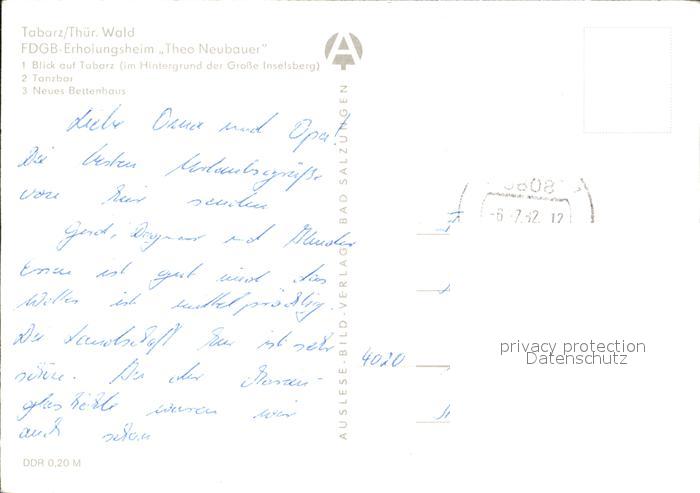 Tabarz/Thür. Wald
FDGB-Erholungsheim „Theo Neubauer"
1 Blick auf Tabarz (im Hintergrund der Große Inselsberg)
2 Tanzbar
3 Neues Bettenhaus
Liebe Oma und Opa!
Die besten Urlaubsgrüße
von hier senden
Gerd, Dagmar und
Essen ist gut und das
Wetter ist mittelprächtig.
Die Landschaft hier ist sehr
schön. In der Marien-
glashöhle waren wir
auch schon
DDR 0,20 M
AUSLESE-BILD-VERLAG BAD SALZUNGEN
-6.-7.82.12
4020
privacy protection
Datenschutz